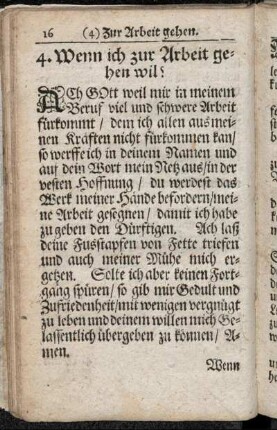 16 (4) Zur Arbeit gehen.
4. Wenn ich zur Arbeit ge-
hen wil?
ACh GOtt weil mir in meinem
Beruf viel und schwere Arbeit
fürkommt / dem ich allen aus mei-
nen Kräften nicht fürkommen kan/
so werffe ich in deinem Namen und
auf dein Wort mein Netz aus/ in der
vesten Hoffnung / du werdest das
Werk meiner Hände befordern/mei-
ne Arbeit gesegnen / damit ich habe
zu geben den Dürftigen. Ach laß
deine Fusstapfen von Fette triefen
und auch meiner Mühe mich er-
getzen. Solte ich aber keinen Fort-
gang spüren/ so gib mir Gedult und
Zufriedenheit/mit wenigen vergnügt
zu leben und deinem willen mich Ge-
lassentlich übergeben zu können/ A-
men.
Wenn